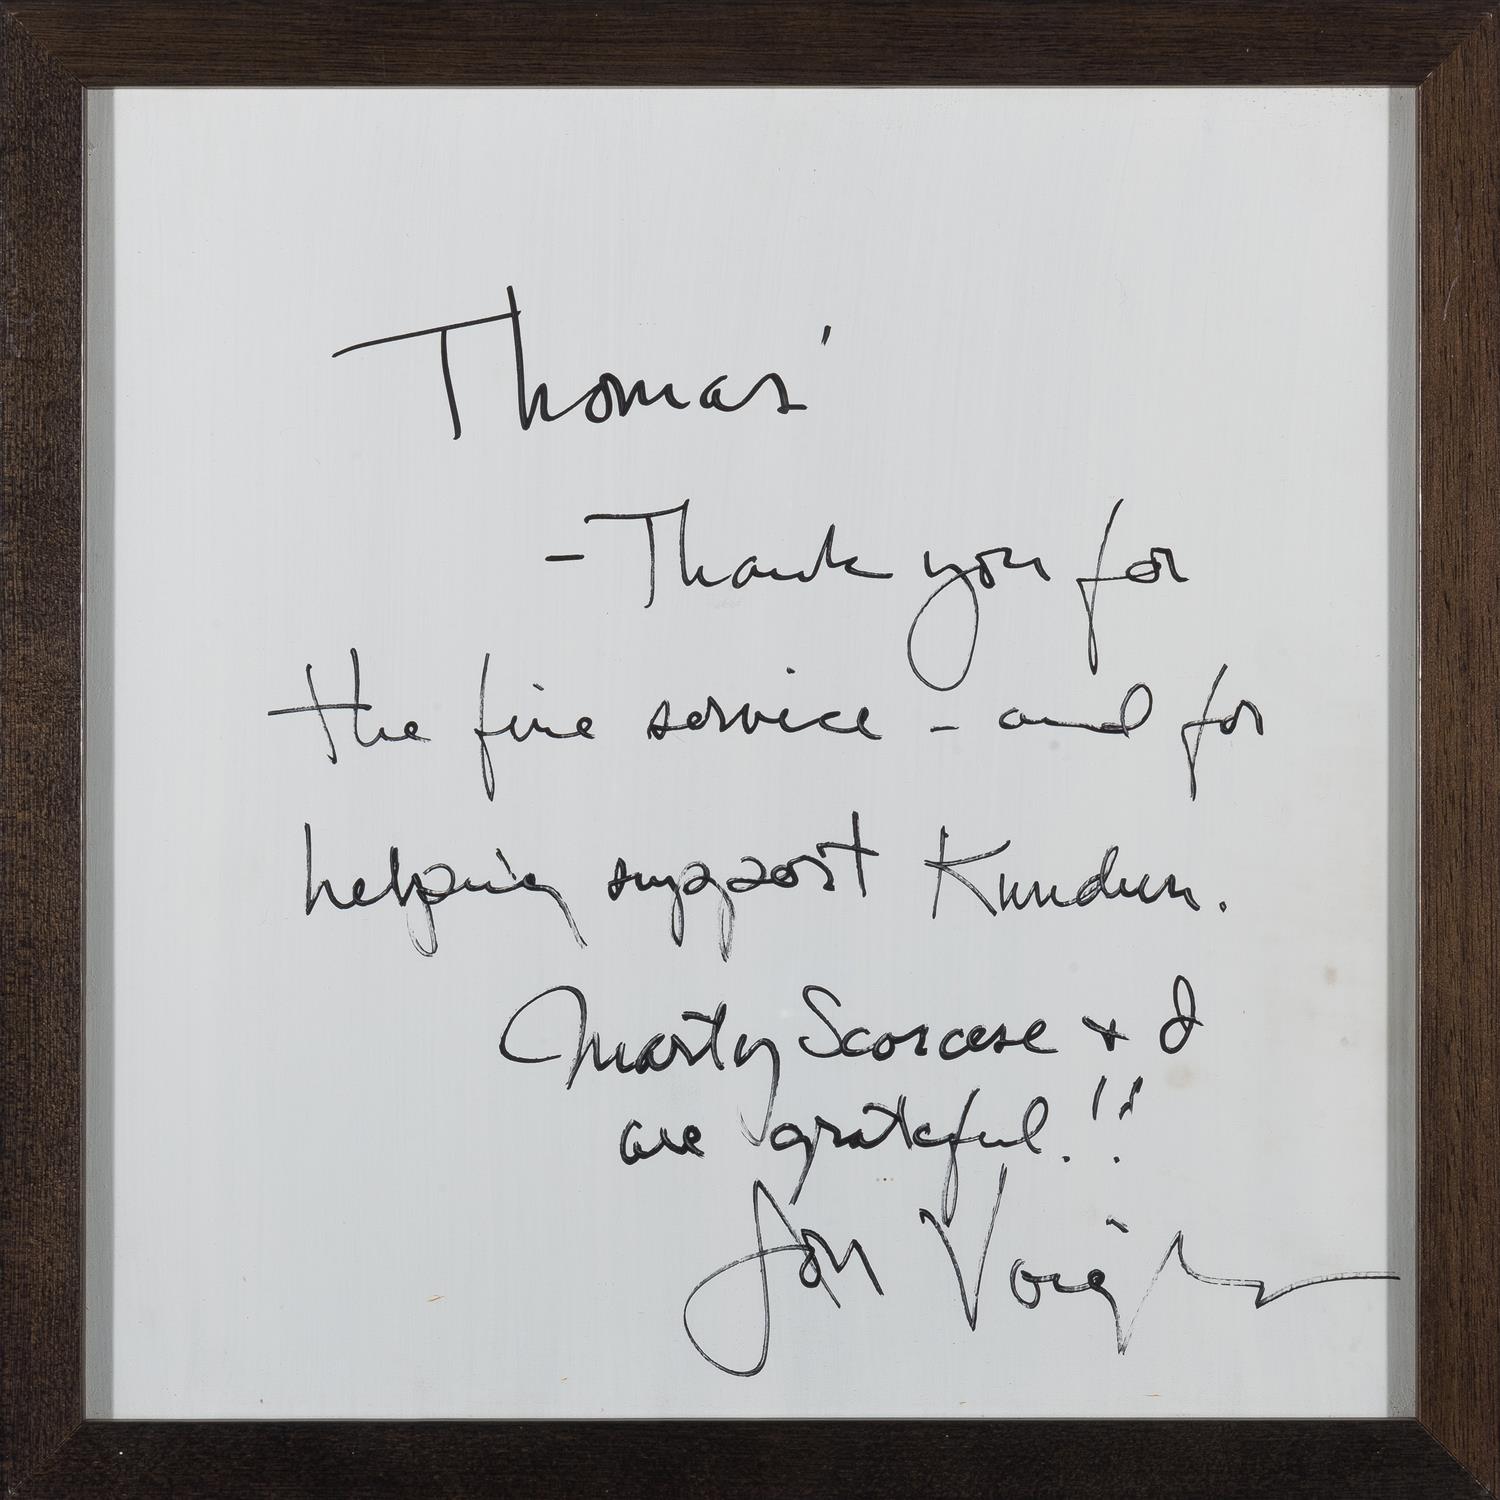 Thomas'
- Thank you for
the fine service - and for
helping support Kundun.
Marty Scorcese + I
are grateful!!
Jon Voight